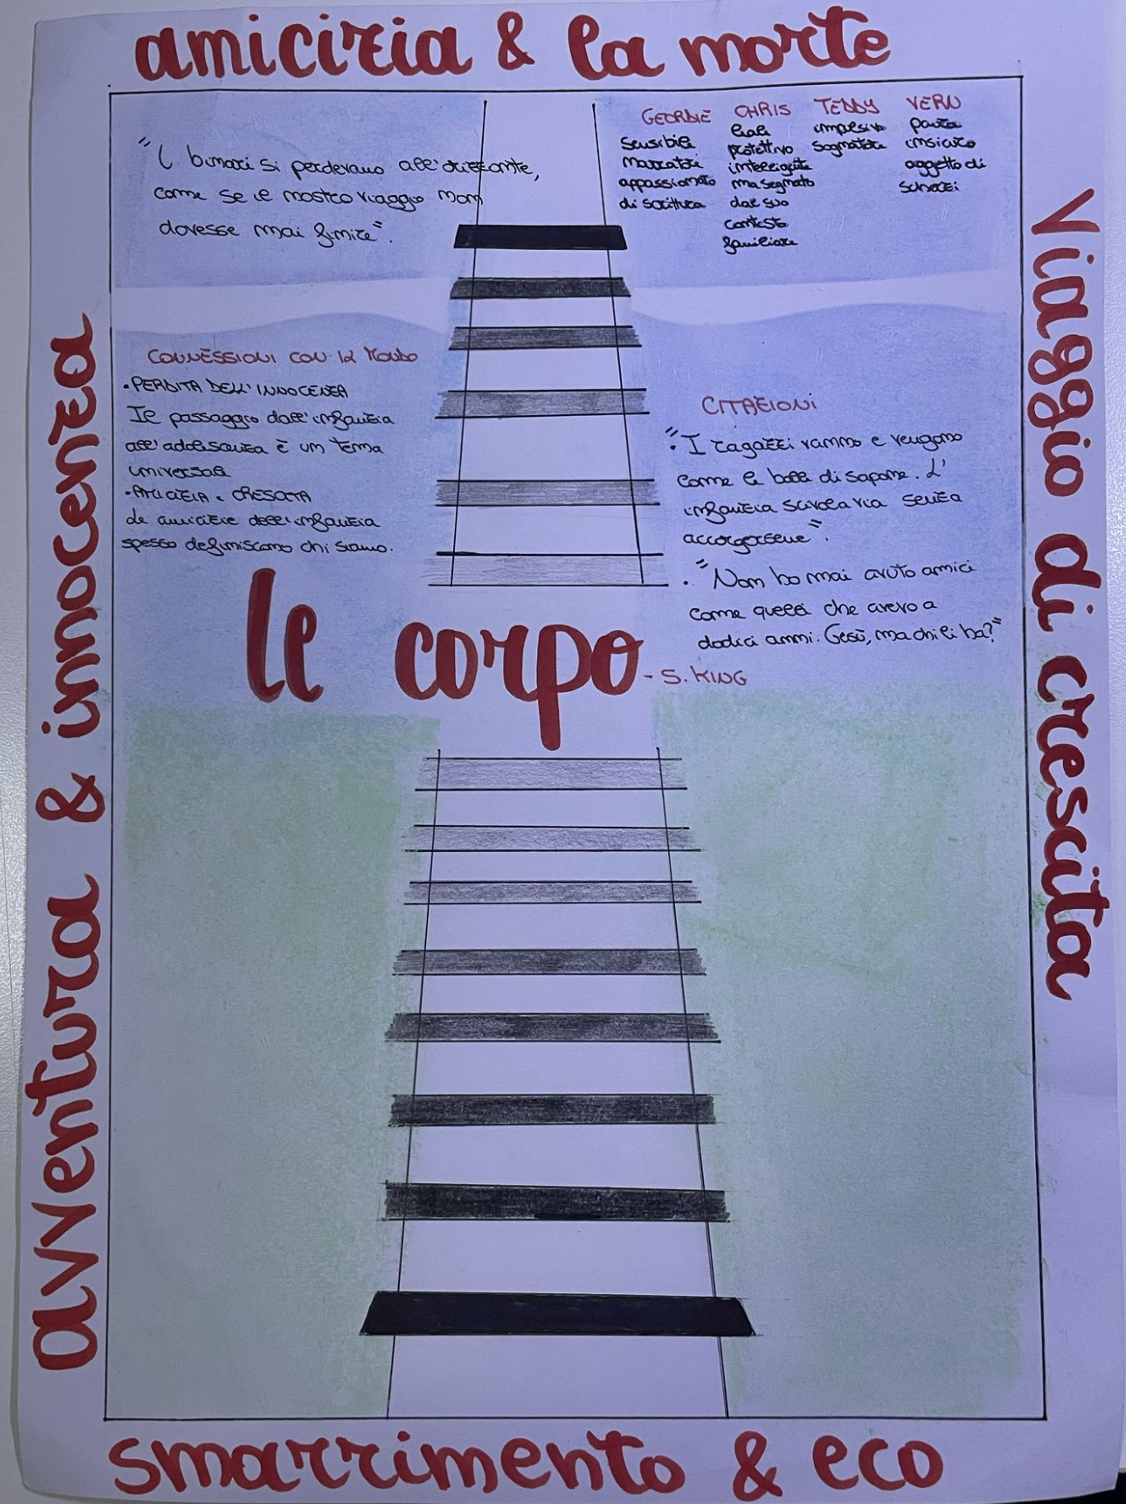 amicizia & la morte
"I binari si perdevano all'orizzonte,
come se il nostro viaggio non
dovesse mai finire".
GEORDIE
sensibile
narratore
appassionato
di scrittura
CHRIS
leale
protettivo
intelligente
ma segnato
dal suo
contesto
familiare
TEDDY
impulsivo
sognatore
VERN
insicuro
oggetto di
scherzi
CONNESSIONI CON IL MONDO
•PERDITA DELL'INNOCENZA
Il passaggio dall'infanzia
all'adolescenza è un tema
universale
•AMICIZIA e CRESCITA
Le amicizie dell'infanzia
spesso definiscono chi siamo.
CITAZIONI
•"I ragazzi vanno e vengono
come le bolle di sapone. L'
infanzia scivola via senza
accorgersene".
•"Non ho mai avuto amici
come quelli che avevo a
dodici anni. Gesù, ma chi li ha?"
Il corpo
- S. KING
avventura & innocenza
Viaggio di crescita
smarrimento & eco